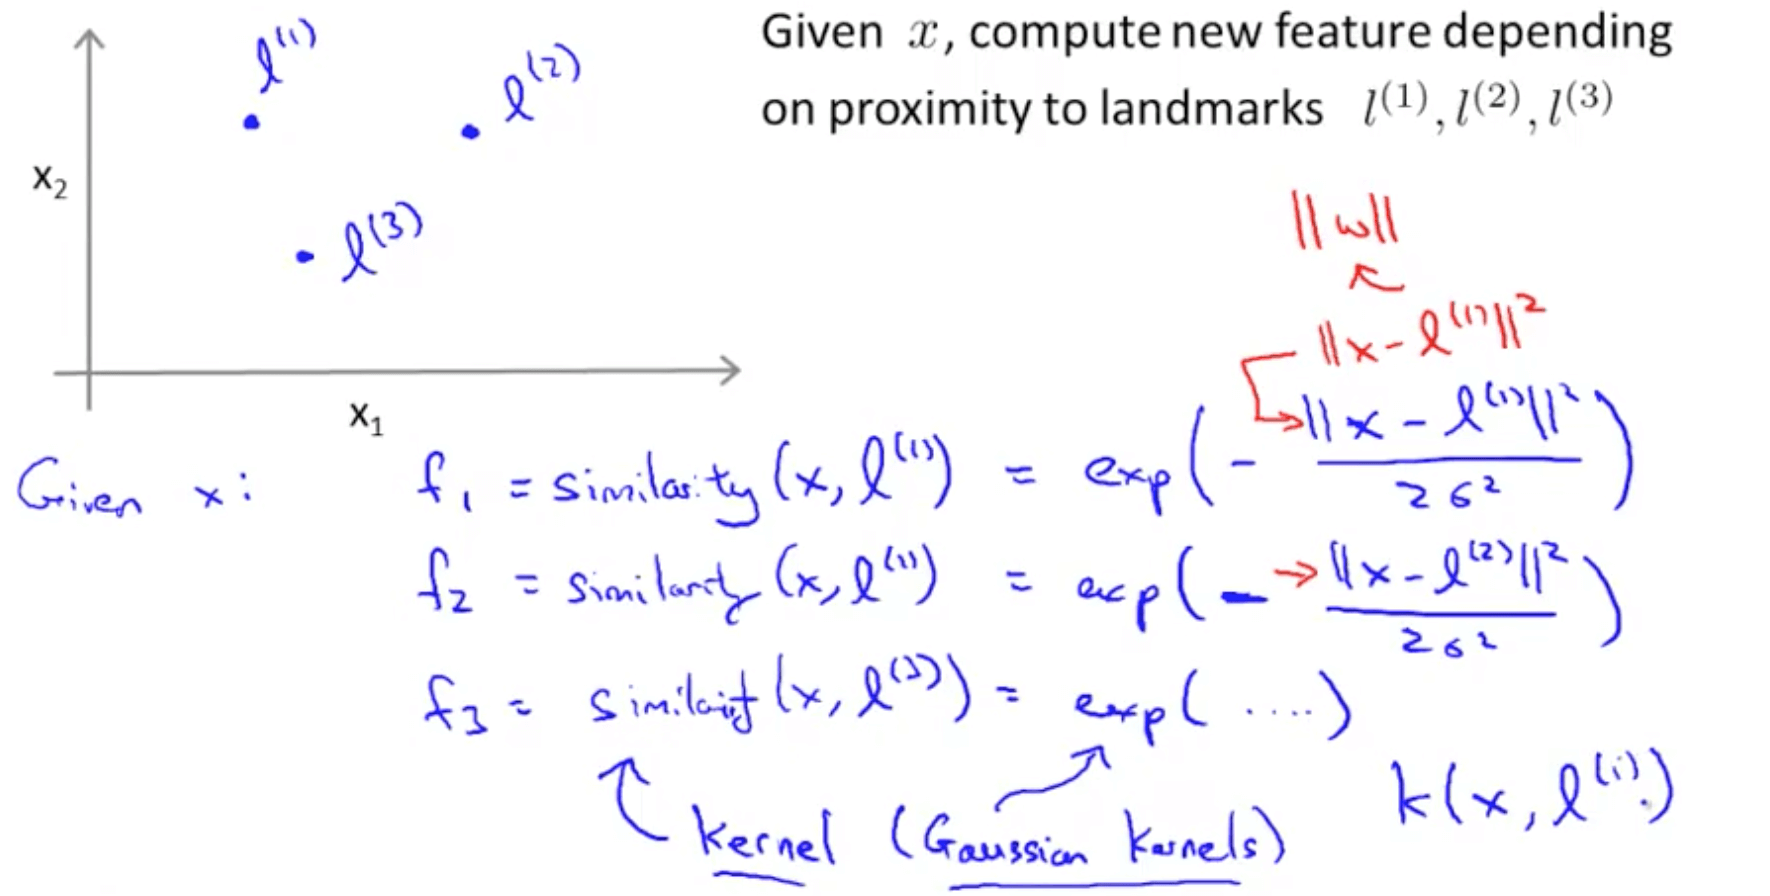 Given x, compute new feature depending
on proximity to landmarks l^(1), l^(2), l^(3)
l^(1)
l^(2)
x₂
l^(3)
x₁
||w||
||x - l^(1)||²
Given x: f₁ = similarity(x, l^(1)) = exp(- ||x - l^(1)||² / 2σ²)
f₂ = similarity(x, l^(1)) = exp(- ||x - l^(2)||² / 2σ²)
f₃ = similarity(x, l^(3)) = exp(....)
kernel (Gaussian kernels) k(x, l^(i))